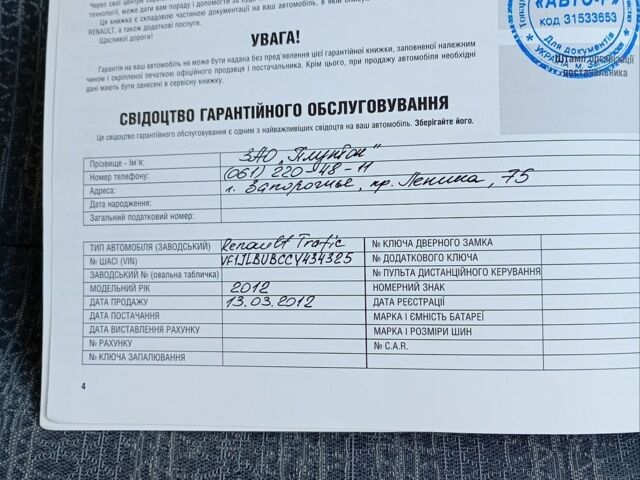 технології, може дати вам пораду і допомогти за
Ця книжка є складовою частиною документації на ваш автомобіль, в якій
RENAULT, а також додаткові послуги.
Щасливої дороги!
УВАГА!
Гарантія на ваш автомобіль не може бути надана без пред'явлення цієї гарантійної книжки, заповненої належним
чином і скріпленої печаткою офіційного продавця і постачальника. Крім цього, при продажу автомобіля необхідні
дані мають бути занесені в сервісну книжку.
«АВТО-
КОД 31533653
Для документів
УКРАЇНА
Штамп організації
постачальника
СВІДОЦТВО ГАРАНТІЙНОГО ОБСЛУГОВУВАННЯ
Це свідоцтво гарантійного обслуговування є одним з найважливіших свідоцтв на ваш автомобіль. Зберігайте його.
Прізвище - Ім'я: ЗАО „Плутон"
Номер телефону: (061) 220-48-11
Адреса: г. Запорожье, пр. Ленина, 75
Дата народження:
Загальний податковий номер:
ТИП АВТОМОБІЛЯ (ЗАВОДСЬКИЙ) Renault Trafic
№ ШАСІ (VIN) VF1JLBUBCCY434325
ЗАВОДСЬКИЙ № (овальна табличка)
МОДЕЛЬНИЙ РІК 2012
ДАТА ПРОДАЖУ 13.03.2012
ДАТА ПОСТАЧАННЯ
ДАТА ВИСТАВЛЕННЯ РАХУНКУ
№ РАХУНКУ
№ КЛЮЧА ЗАПАЛЮВАННЯ
№ КЛЮЧА ДВЕРНОГО ЗАМКА
№ ДОДАТКОВОГО КЛЮЧА
№ ПУЛЬТА ДИСТАНЦІЙНОГО КЕРУВАННЯ
НОМЕРНИЙ ЗНАК
ДАТА РЕЄСТРАЦІЇ
МАРКА І ЄМНІСТЬ БАТАРЕЇ
МАРКА І РОЗМІРИ ШИН
№ C.A.R.
4